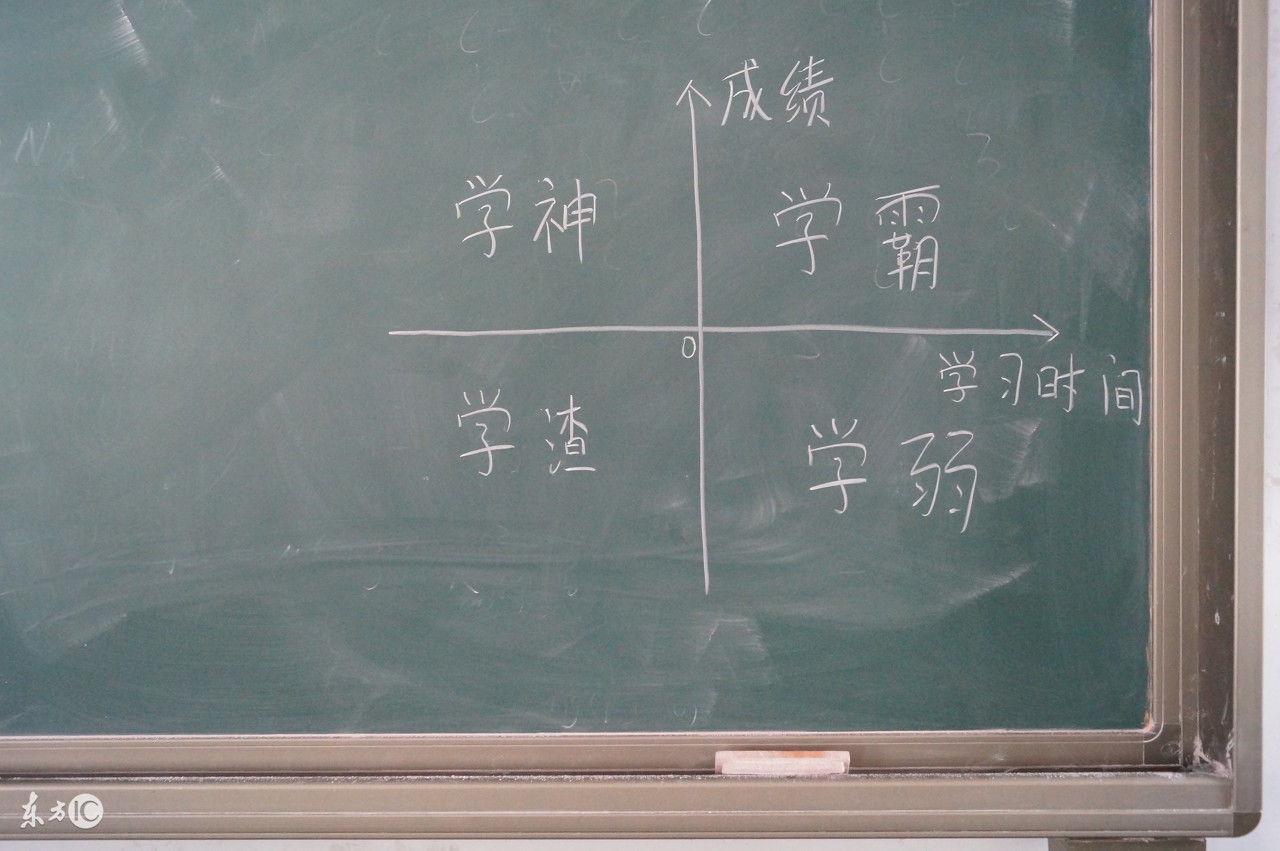 成绩
学神 学霸
0
学习时间
学渣 学弱
Na
东方IC